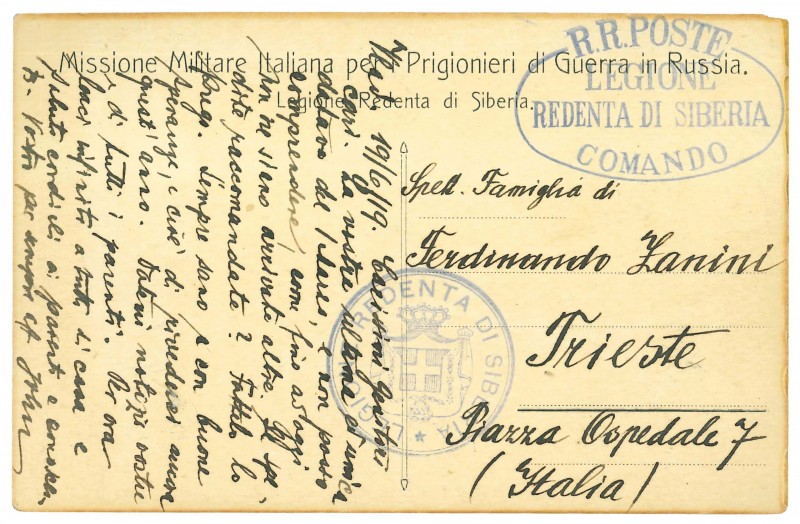 Missione Militare Italiana per i Prigionieri di Guerra in Russia.
Legione Redenta di Siberia.
R.R. POSTE
LEGIONE
REDENTA DI SIBERIA
COMANDO
Spett. Famiglia di
Ferdinando Zanini
Trieste
Piazza Ospedale 7
(Italia)
LEGIONE REDENTA DI SIBERIA
19/6/19. Carissimi genitori
cari. La vostra ultima ed unica
datava del Marzo, e non posso
comprendere, come fino ad oggi
non ne sieno arrivate altre. Le spe-
dite racomandate? Fatelo lo
prego. Sempre sano e con buone
speranze, e cioè di rivederci ancora
quest'anno. Datemi notizie vostre
e di tutti i parenti. Per ora
baci infiniti a tutti di casa e
saluti cordiali ai parenti e conoscen-
ti. Vostro per sempre